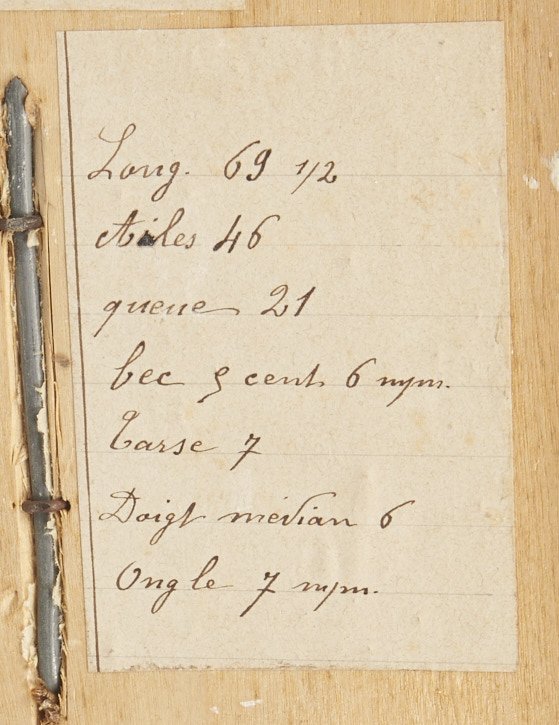 Long. 69 1/2
Ailes 46
queue 21
bec 5 cent. 6 mm.
Tarse 7
Doigt médian 6
Ongle 7 mm.